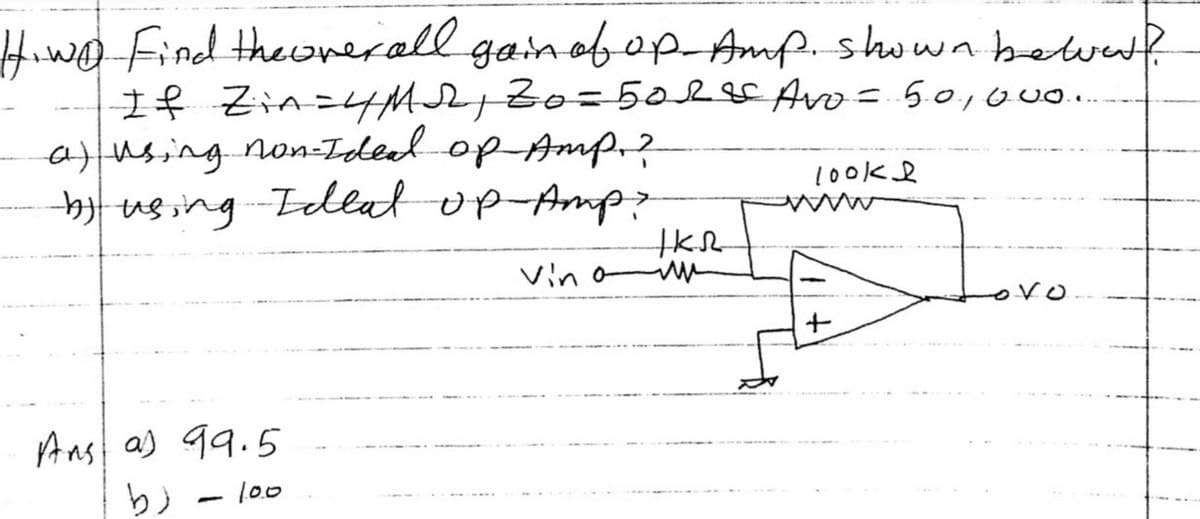 H.W① Find the overall gain of op-Amp. shown below?
If Zin=4MΩ, Zo=50Ω & Avo= 50,000.
a) using non-Ideal op-Amp.?
100kΩ
b) using Ideal op-Amp?
1kΩ
Vin
-
Vo
+
Ans a) 99.5
b) - 100